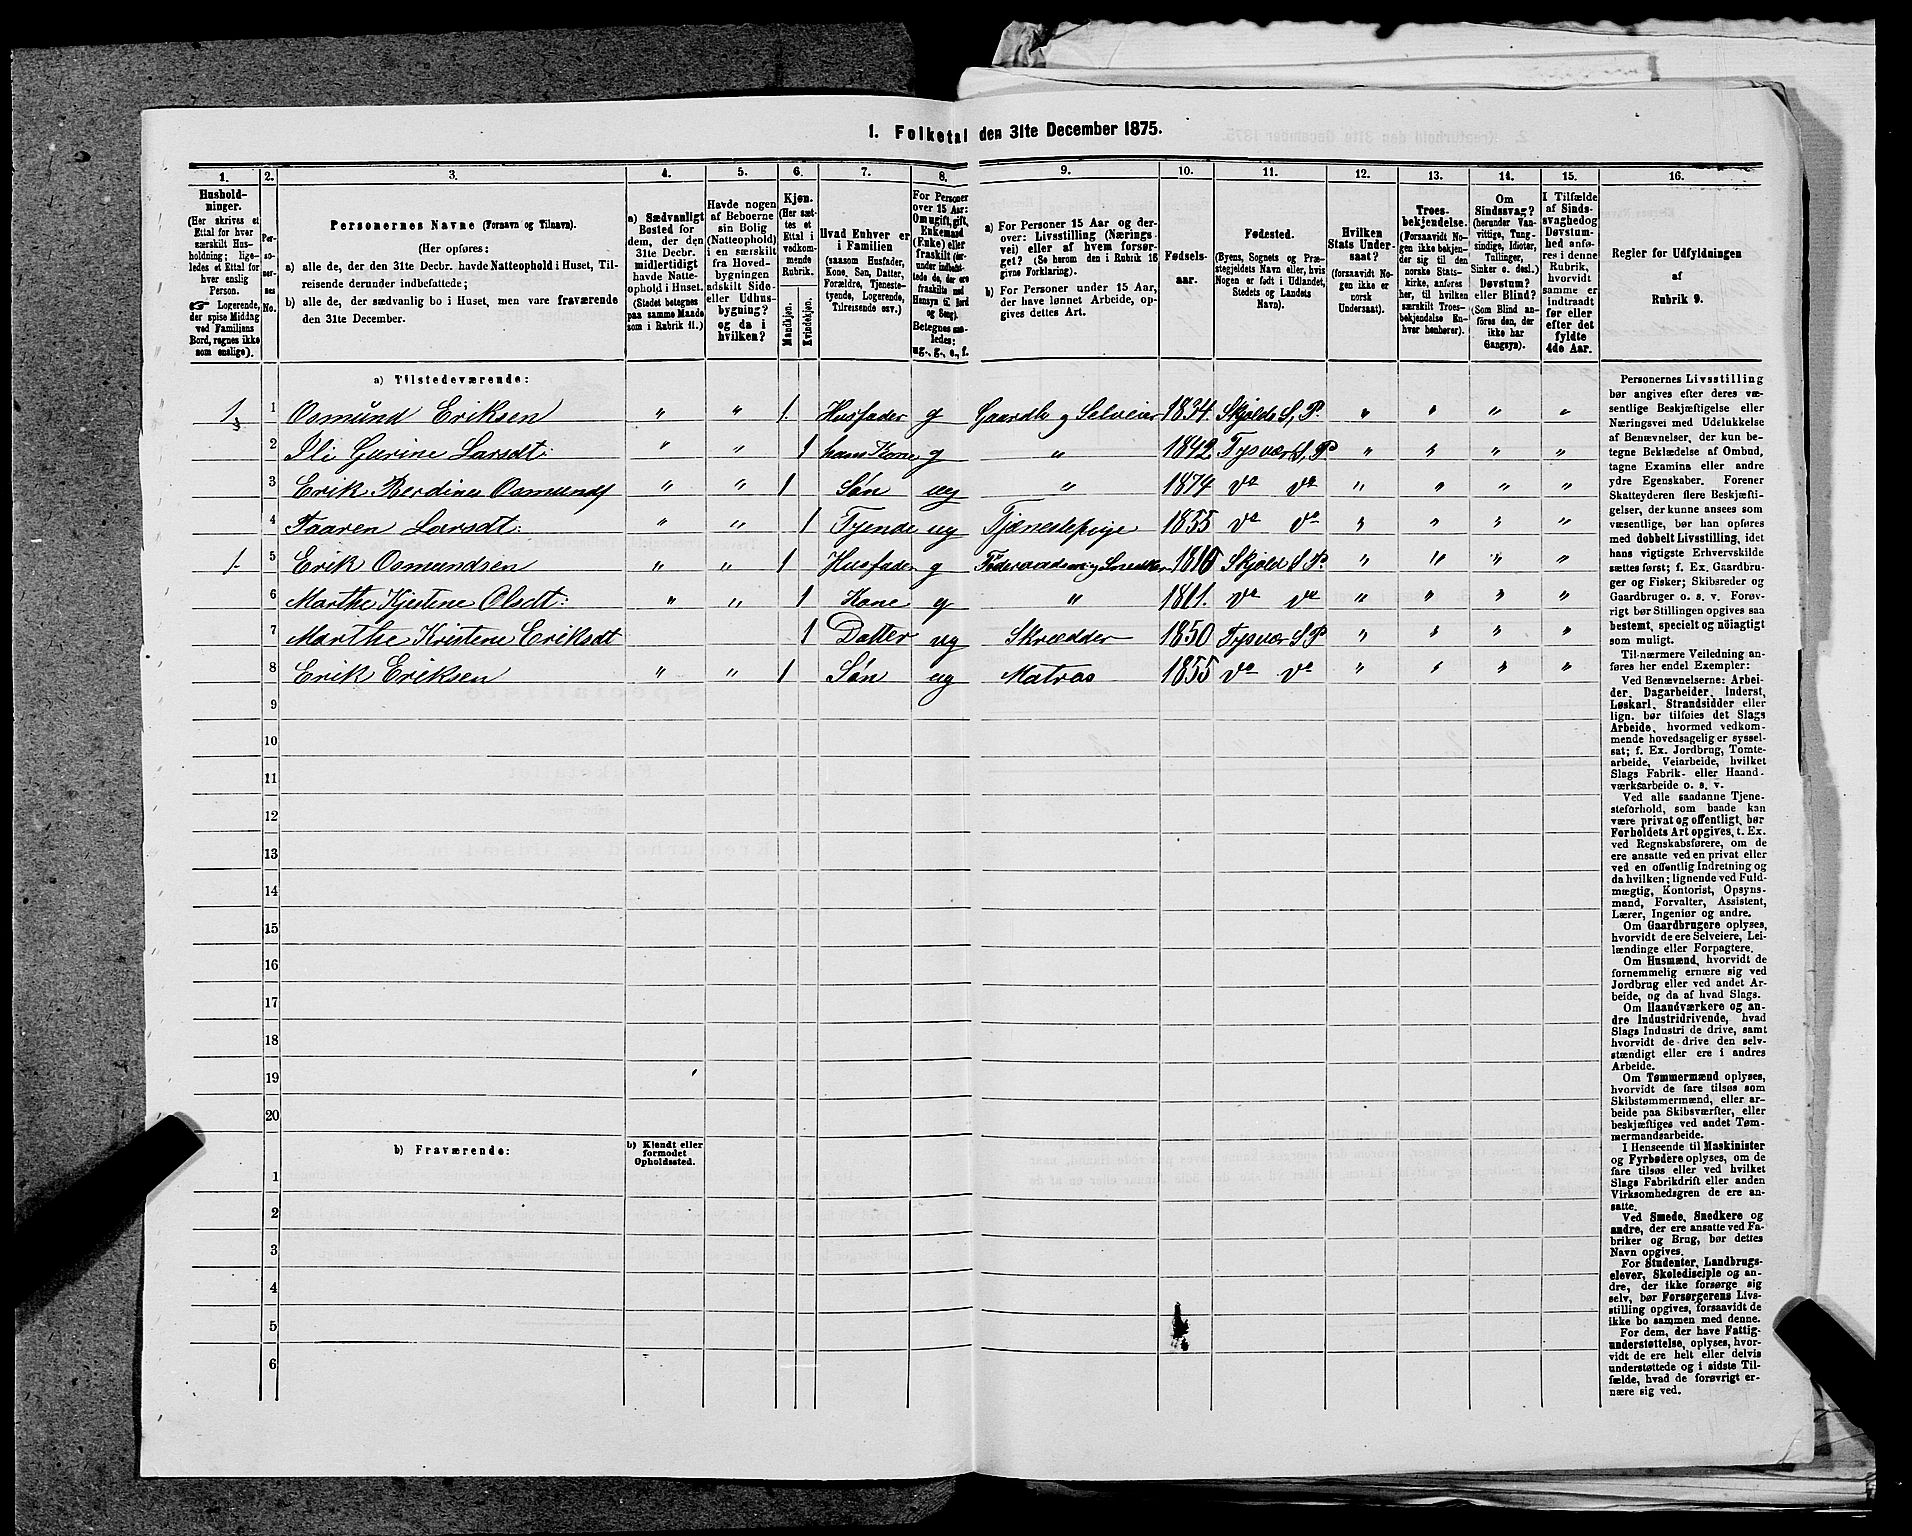 1. Folketal den 31te December 1875.
1. 2. 3. 4. 5. 6. 7. 8. 9. 10. 11. 12. 13. 14. 15. 16.
Hushold-
ninger.
(Her skrives et
Ettal for hver
særskilt Hus-
holdning; lige-
ledes et Ettal for
hver enslig
Person.
☞ Logerende,
der spise Middag
ved Familiens
Bord, regnes ikke
som enslige).
Per-
soner-
nes
No.
Personernes Navne (Fornavn og Tilnavn).
(Her opføres:
a) alle de, der den 31te Decbr. havde Natteophold i Huset, Til-
reisende derunder indbefattede;
b) alle de, der sædvanlig bo i Huset, men vare fraværende
den 31te December.
a) Sædvanligt
Bosted for
dem, der den
31te Decbr.
midlertidigt
havde Natte-
ophold i Huset.
(Stedet betegnes
paa samme Maade
som i Rubrik 11.)
Havde nogen
af Beboerne
sin Bolig
(Natteophold)
i en særskilt
fra Hoved-
bygningen
adskilt Side-
eller Udhus-
bygning?
og da i
hvilken?
Kjøn.
(Her sæt-
tes et
Ettal i
vedkom-
mende
Rubrik.
Mandkjøn.
Kvindekjøn.
Hvad Enhver er
i Familien
(saasom Husfader,
Kone, Søn, Datter,
Forældre, Tjeneste-
tyende, Logerende,
Tilreisende osv.)
For Personer
over 15 Aar:
Om ugift, gift,
Enkemand
(Enke) eller
fraskilt (her-
under indbefat-
tede de, der ere
fraskilte med
Hensyn til Bord
og Seng).
Betegnes saa-
ledes:
ug., g., e., f.
a) For Personer 15 Aar og der-
over: Livsstilling (Nærings-
vei) eller af hvem forsør-
get? (Se herom den i Rubrik 16
givne Forklaring).
b) For Personer under 15 Aar,
der have lønnet Arbeide, op-
gives dettes Art.
Fødsels-
aar.
Fødested.
(Byens, Sognets og Præ-
stegjeldets Navn eller, hvis
Nogen er født i Udlandet,
Stedets og Landets
Navn).
Hvilken
Stats Under-
saat?
(forsaavidt No-
gen ikke er
norsk
Undersaat).
Troes-
bekjendelse.
(Forsaavidt No-
gen ikke bekjen-
der sig til den
norske Stats-
kirke, anføres
her, til hvilken
særskilt Troes-
bekjendelse En-
hver henhører).
Om
Sindssvag?
(herunder Van-
vittige, Tung-
sindige, Idioter,
Tullinger,
Sinker o. desl.)
Døvstum?
eller Blind?
(Som Blind an-
føres den, der
ikke har
Gangsyn).
I Tilfælde
af Sinds-
svaghed og
Døvstum-
hed anfø-
res i denne
Rubrik,
hvorvidt
samme er
indtraadt
før eller
efter det
fyldte
4de Aar.
Regler for Udfyldningen
af
Rubrik 9.
a) Tilstedeværende:
1 1 Osmund Eriksen " " 1. Husfader g Gaardb. og Selveier 1834. Skjolds S, P. " " " "
2 Ili Gurine Larsdt: " " 1 hans Kone g " 1842 Tysvær S, P " " " "
3 Erik Berdines Osmunds " " 1 Søn ug " 1874 do do " " " "
4 Taaren Larsdt: " " 1 Tjende ug Tjenestepige 1855 do do " " " "
1 5 Erik Osmundsen " " 1 Husfader g 1810 Skjold S P. " " " "
6 Marthe Kjestene Olsdt: " " 1 Kone g " 1811. do do " " " "
7 Marthe Kristene Eriksdt 1 Datter ug Skrædder 1850 Tysvær S, P " " " "
8 Erik Eriksen " " 1 Søn ug Matros 1855 do do " " " "
9
10
11
12
13
14
15
16
17
18
19
20
b) Fraværende:
b) Kjendt eller
formodet
Opholdssted.
1
2
3
4
5
6
Personernes Livsstilling
bør angives efter deres væ-
sentlige Beskjæftigelse eller
Næringsvei med Udelukkelse
af Benævnelser, der kun be-
tegne Beklædelse af Ombud,
tagne Examina eller andre
ydre Egenskaber. Forener
Skatteyderen flere Beskjæfti-
gelser, der kunne ansees som
væsentlige, bør han opføres
med dobbelt Livsstilling, idet
hans vigtigste Erhvervskilde
sættes først; f. Ex. Gaardbru-
ger og Fisker; Skibsreder og
Gaardbruger o. s. v. Forøv-
rigt bør Stillingen opgives saa
bestemt, specielt og nöiagtigt
som muligt.
Til nærmere Veiledning an-
føres her endel Exempler:
Ved Benævnelserne: Arbei-
der, Dagarbeider, Inderst,
Løskarl, Strandsidder eller
lign. bør tilføies det Slags
Arbeide, hvormed vedkom-
mende hovedsagelig er syssel-
sat; f. Ex. Jordbrug, Tomte-
arbeide, Veiarbeide, hvilket
Slags Fabrik- eller Haand-
værksarbeide o. s. v.
Ved alle saadanne Tjene-
steforhold, som baade kan
være privat og offentligt, bør
Forholdets Art opgives, t. Ex.
ved Regnskabsførere, om de
ere ansatte ved en privat eller
ved en offentlig Indretning og
da hvilken; lignende ved Fuld-
mægtig, Kontorist, Opsyns-
mand, Forvalter, Assistent,
Lærer, Ingeniør og andre.
Om Gaardbrugere oplyses,
hvorvidt de ere Selveiere, Lei-
lændinge eller Forpagtere.
Om Husmænd, hvorvidt de
fornemmelig ernære sig ved
Jordbrug eller ved andet Ar-
beide, og da af hvad Slags.
Om Haandværkere og an-
dre Industridrivende, hvad
Slags Industri de drive, samt
hvorvidt de drive den selv-
stændigt eller ere i andres
Arbeide.
Om Tømmermænd oplyses,
hvorvidt de fare tilsøs som
Skibstømmermænd, eller ar-
beide paa Skibsværfter, eller
beskjæftiges ved andet Tøm-
mermandsarbeide.
I Henseende til Maskinister
og Fyrbødere oplyses, om de
fare tilsøs eller ved hvilket
Slags Fabrikdrift eller anden
Virksomhedsgren de ere an-
satte.
Ved Smede, Snedkere og
andre, der ere ansatte ved Fa-
briker og Brug, bør dettes
Navn opgives.
For Studenter, Landbrugs-
elever, Skoledisciple og an-
dre, der ikke forsørge sig
selv, bør Forsørgerens Livs-
stilling opgives, forsaavidt de
ikke bo sammen med denne.
For dem, der have Fattig-
understøttelse, oplyses, hvor-
vidt de ere helt eller delvis
understøttede og i sidste Til-
fælde, hvad de forøvrigt er-
nære sig ved.